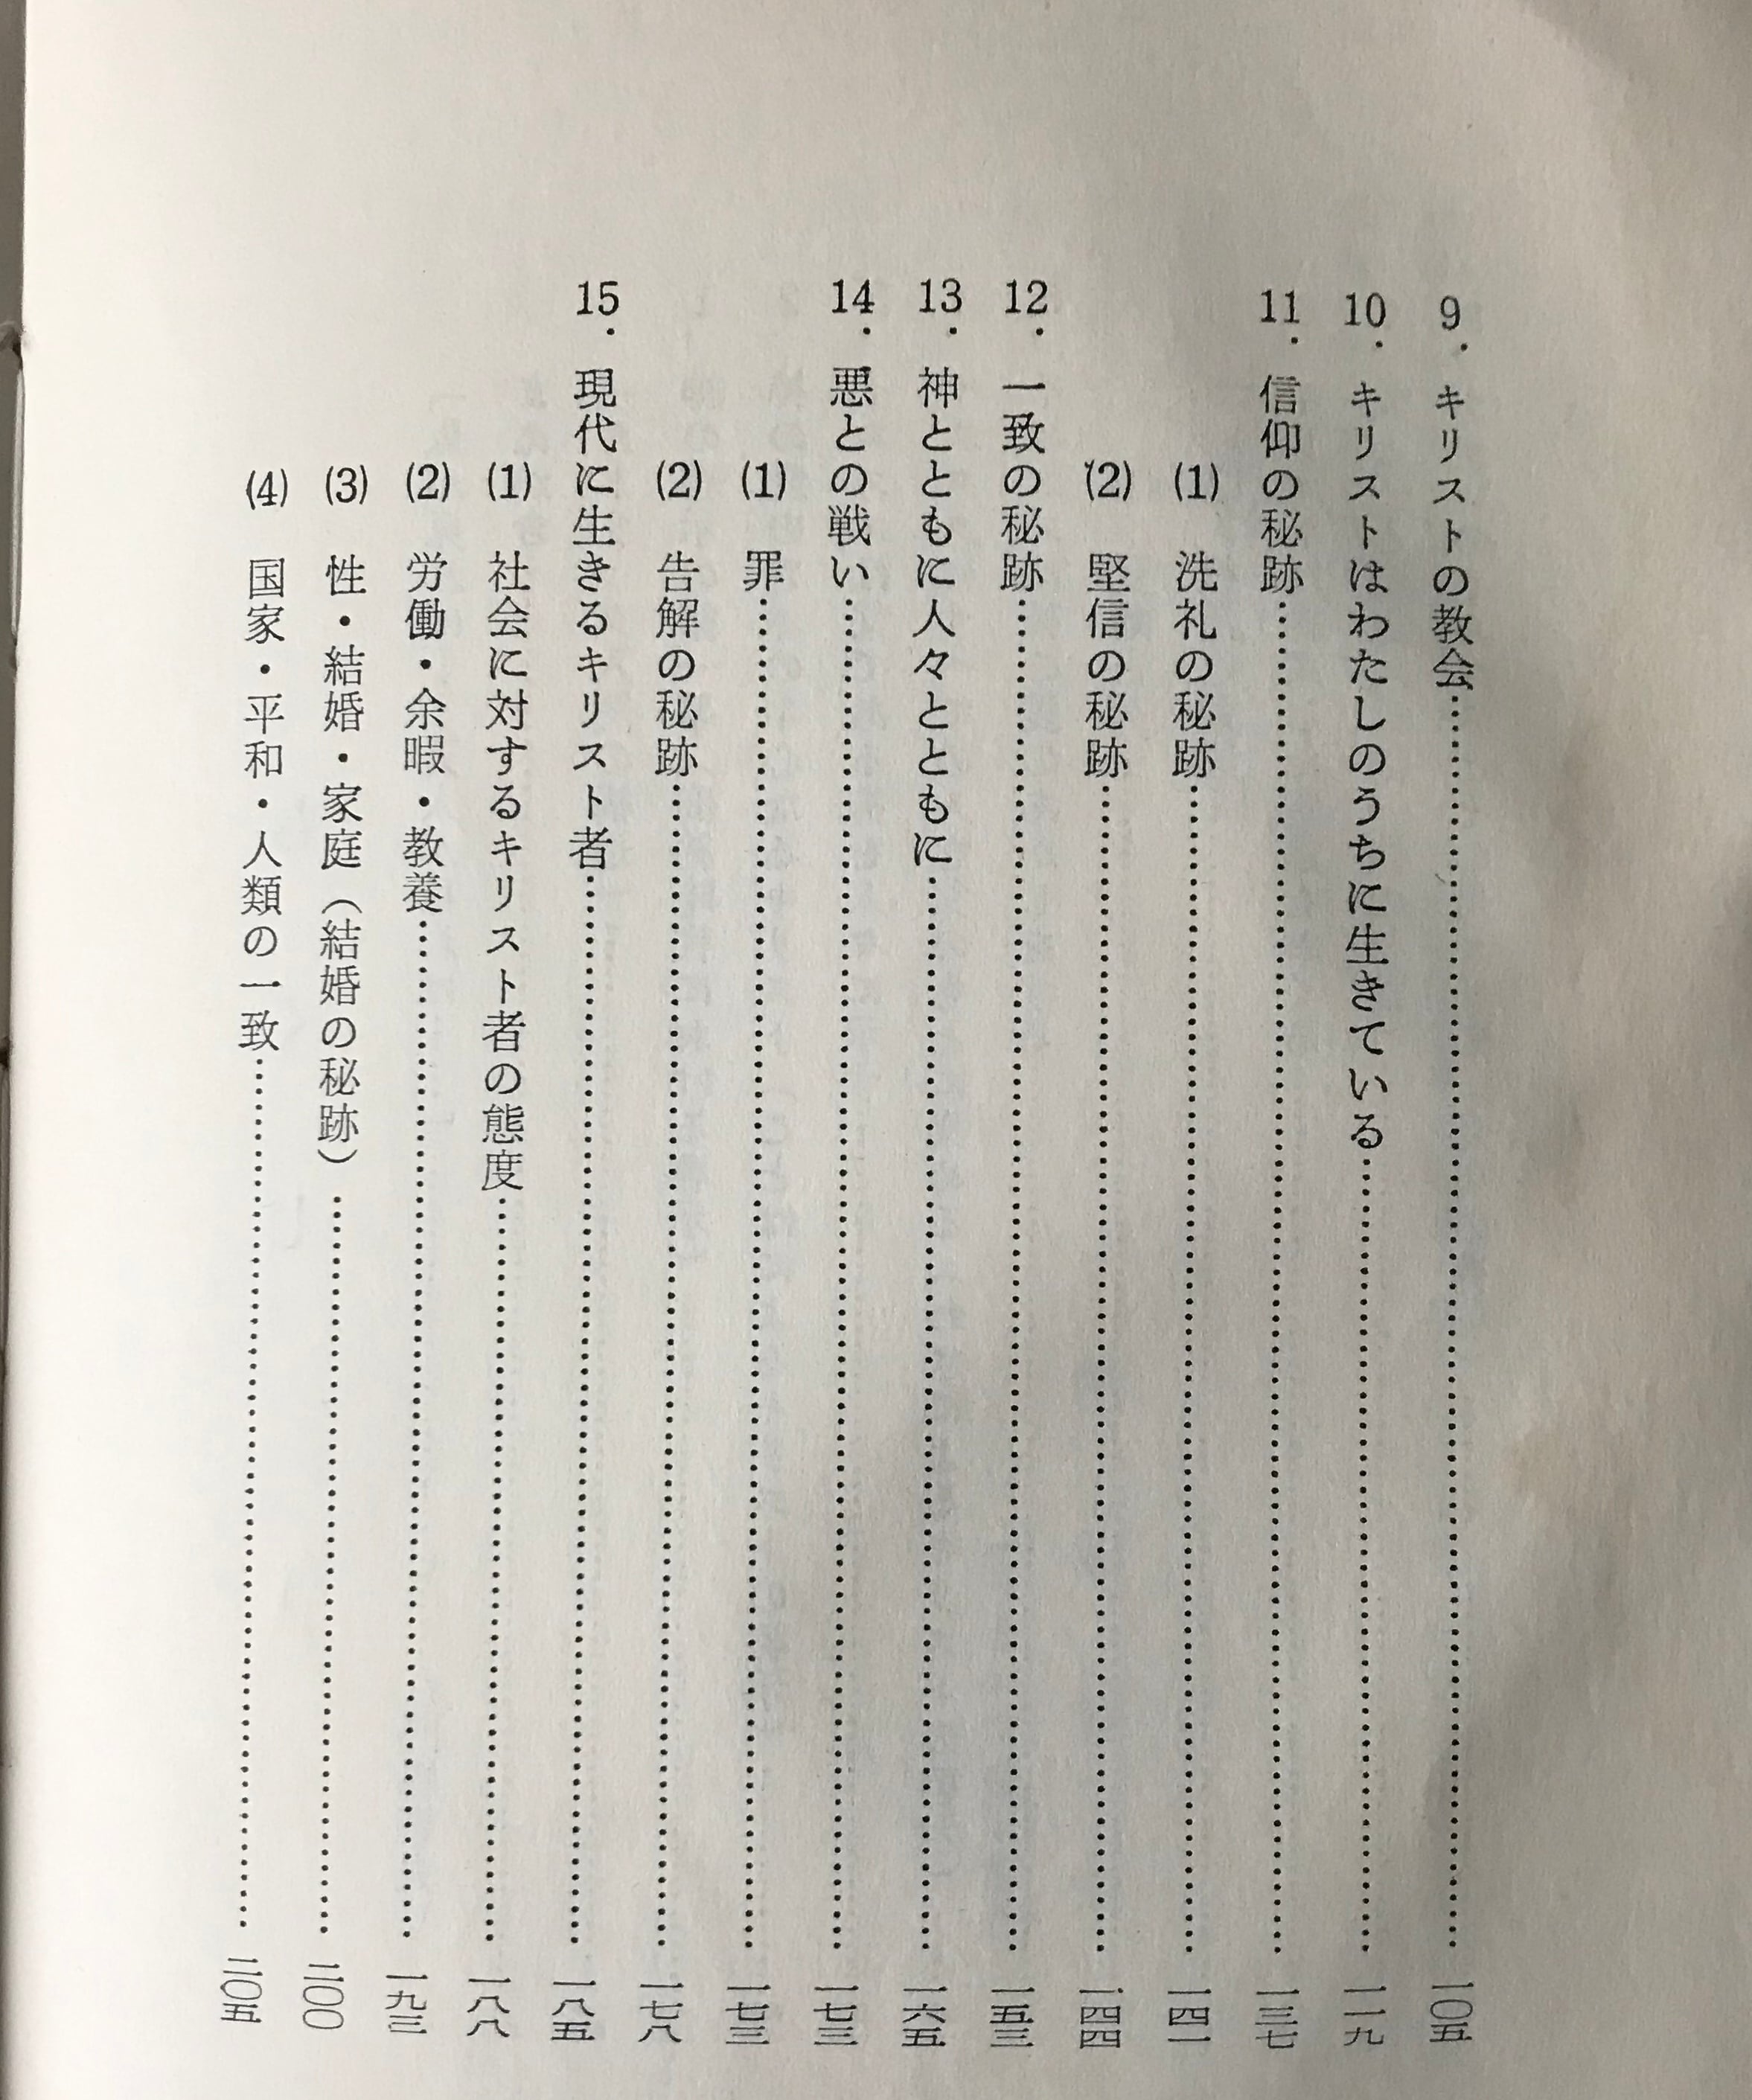 9. キリストの教会……一〇五
10. キリストはわたしのうちに生きている……一一九
11. 信仰の秘跡……一三七
(1) 洗礼の秘跡……一四一
(2) 堅信の秘跡……一四四
12. 一致の秘跡……一五三
13. 神とともに人々とともに……一六五
14. 悪との戦い……一七三
(1) 罪……一七三
(2) 告解の秘跡……一七八
15. 現代に生きるキリスト者……一八五
(1) 社会に対するキリスト者の態度……一八八
(2) 労働・余暇・教養……一九三
(3) 性・結婚・家庭（結婚の秘跡）……二〇〇
(4) 国家・平和・人類の一致……二〇五